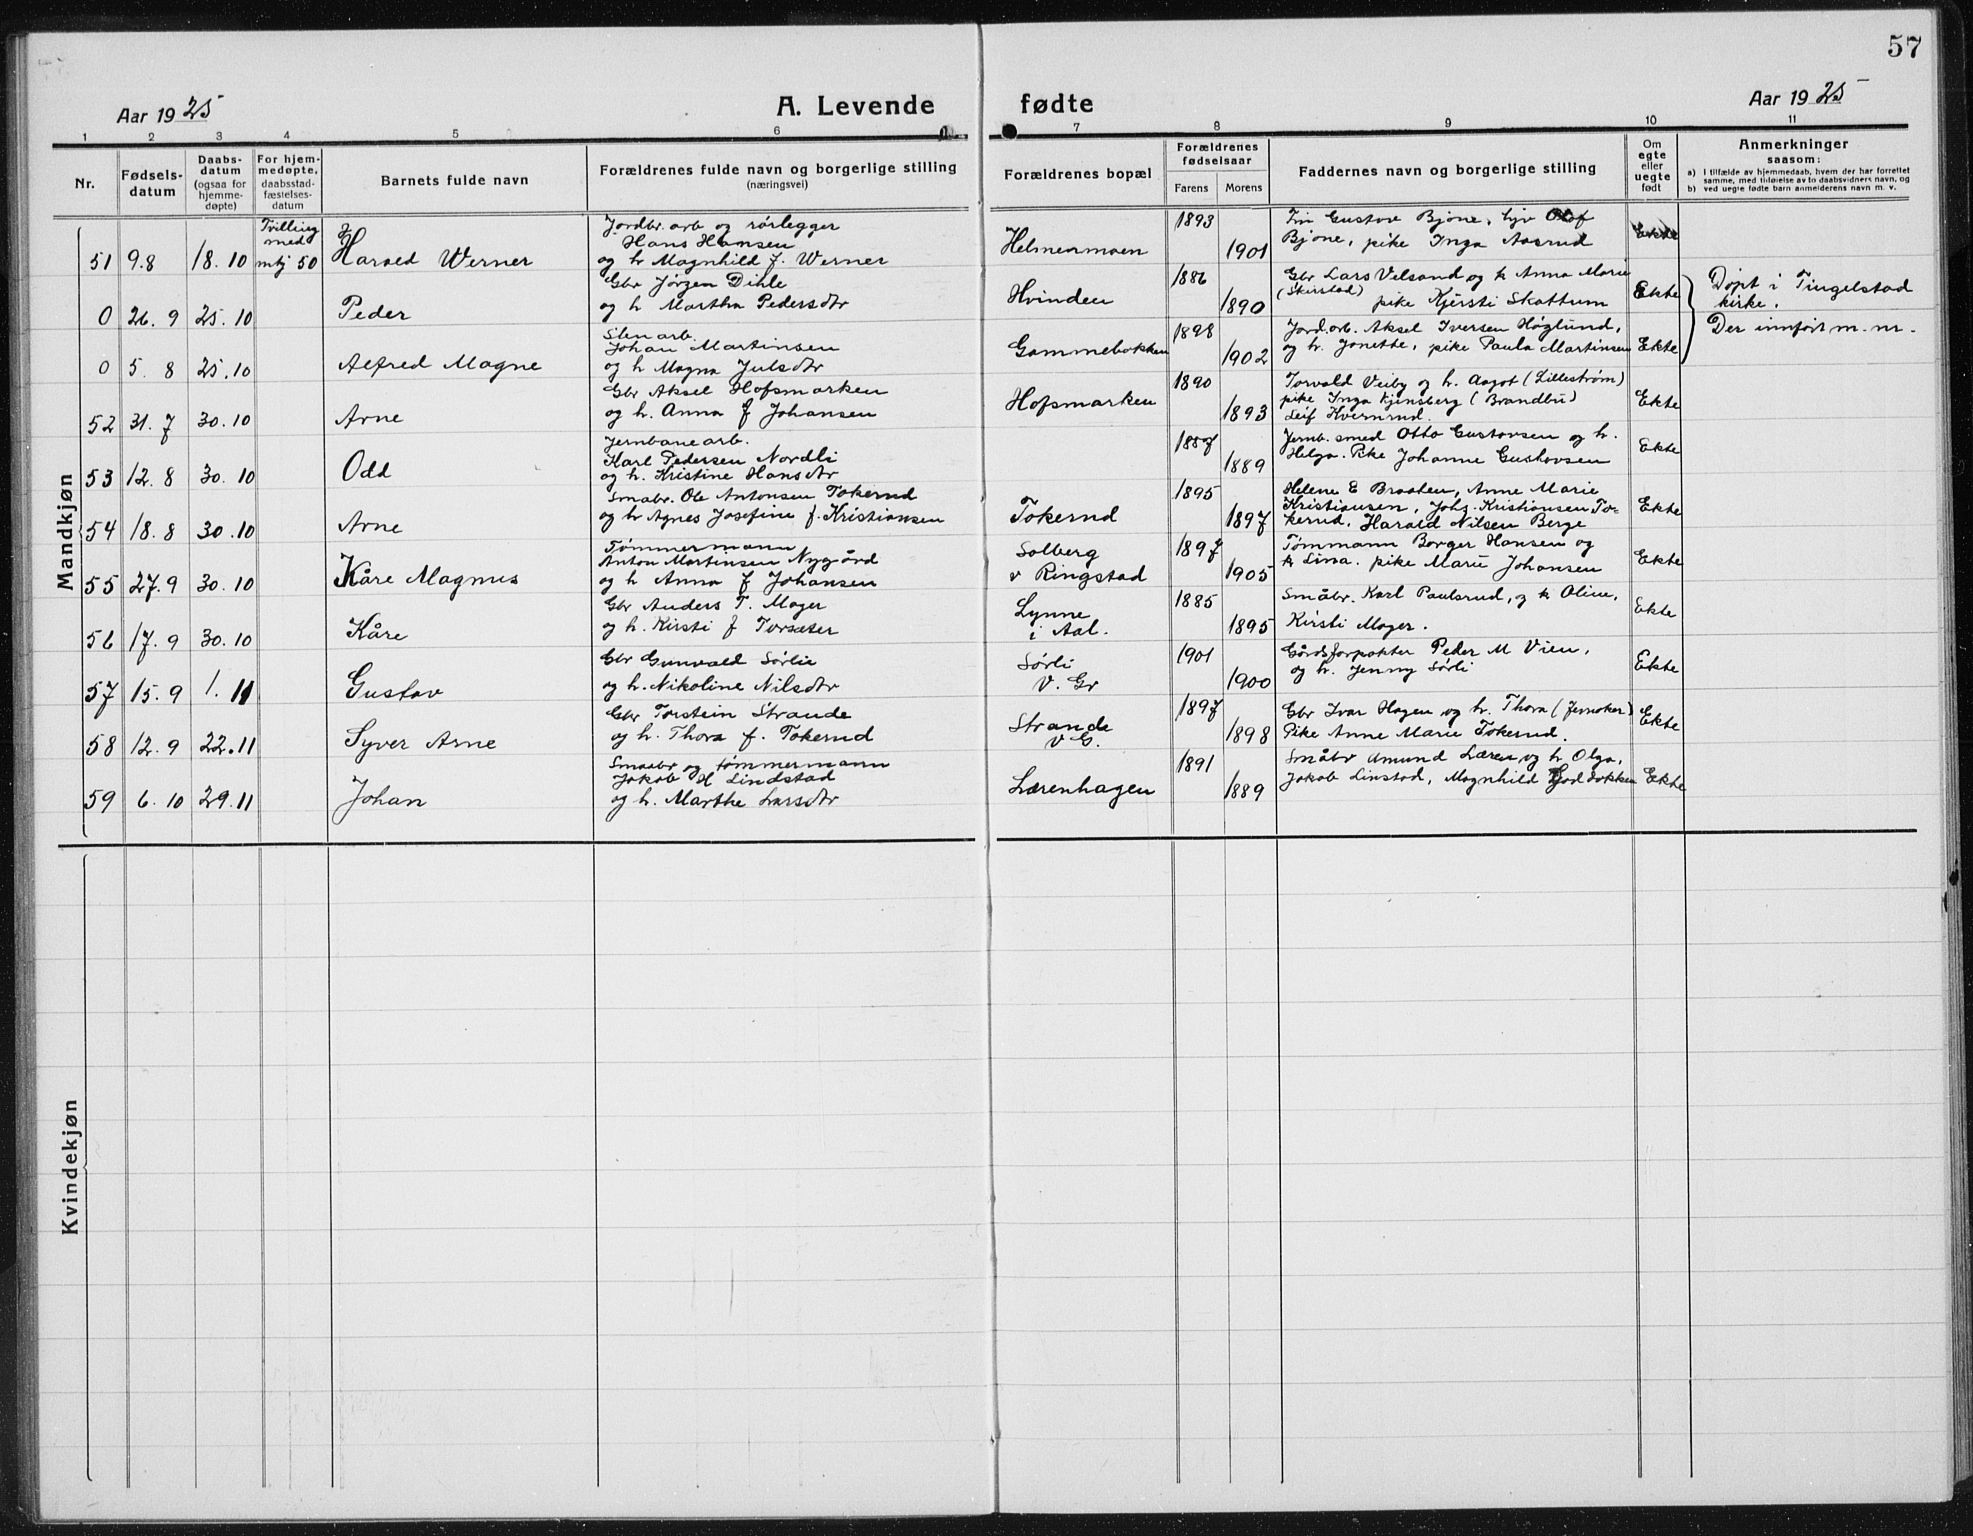 57
Aar 1925
A. Levende fødte
Aar 1925
1 2 3 4 5 6 7 8 9 10 11
Nr.
Fødsels-
datum
Daabs-
datum
(ogsaa for
hjemme-
døpte)
For hjem-
medøpte,
daabsstad-
fæstelses-
datum
Barnets fulde navn
Forældrenes fulde navn og borgerlige stilling
(næringsvei)
Forældrenes bopæl
Forældrenes
fødselsaar
Farens Morens
Faddernes navn og borgerlige stilling
Om
egte
eller
uegte
født
Anmerkninger
saasom:
a) I tilfælde av hjemmedaab, hvem der har forrettet
samme, med tilføielse av to daabsvidners navn, og
b) ved uegte fødte barn anmelderens navn m. v.
Mandkjøn
51 9.8 18.10
Tvilling
med
mkj 50
Harald Werner
Jordbr. arb og rørlegger
Hans Hansen
og h Magnhild f. Werner
Helmenmoen
1893
1901
Gustav Bjone, Olof
Bjone, pike Inga Aasrud
Ekte
0 26.9 25.10
Peder
Gbr Jørgen Dihle
og h Martha Pedersdtr
Hvinden
1886
1890
Gbr Lars Velsand og k Anna Marie
(Skirstad) pike Kjersti Skattum
Ekte
Døpt i Tingelstad
kirke.
Der innført m. nr.
0 5.8 25.10
Alfred Magne
Stenarb.
Johan Martinsen
og h Magna Julsdtr
Gammebakken
1898
1902
Jord.arb. Aksel Iversen Høglund,
og h. Jonette, pike Paula Martinsen
Ekte
52 31.7 30.10
Arne
Gbr Aksel Hofsmarken
og h. Anna f Johansen
Hofsmarken
1890
1893
Torvald Veiby og h. Aagot (Lillestrøm)
pike Inga Kjensberg (Brandbu)
Leif Kvernrud.
Ekte
53 12.8 30.10
Odd
Jernbanearb.
Karl Pedersen Nordli
og h. Kristine Hansdtr
1887
1889
Jernb. smed Otto Gustavsen og h.
Helga. Pike Johanne Gustavsen
Ekte
54 18.8 30.10
Arne
Smabr. Ole Antonsen Tokerud
og h Agnes Josefine f. Kristiansen
Tokerud
1895
1897
Helene E Braaten, Anne Marie
Kristiansen, Johs. Kristiansen To-
kerud, Harald Nilsen Berge
Ekte
55 27.9 30.10
Kåre Magnus
Tømmermann
Anton Martinsen Nygård
og h Anna f Johansen
Solberg
v Ringstad
1897
1905
Tømmann Borger Hansen og
k Lina. pike Marie Johansen
Ekte
56 17.9 30.10
Kåre
Gbr Anders T. Moger
og h. Kirsti f Torsæter
Lynne
i Aal.
1885
1895
Småbr. Karl Paulsrud, og k Oline,
Kirsti Moger.
Ekte
57 15.9 1.11
Gustav
Gbr Gunvald Sørlie
og h. Nikoline Nilsdtr
Sørli
V. Gr
1901
1900
Gårdsforpakter Peder M Vien,
og h. Jenny Sørli
Ekte
58 12.9 22.11
Syver Arne
Gbr Torstein Strande
og h. Thora f. Tokerud
Strande
V G.
1897
1898
Gbr Ivar Hagen og h. Thora (Jevnaker)
Pike Anne Marie Tokerud.
Ekte
59 6.10 29.11
Johan
Smaabr og tømmermann
Jakob H Lindstad
og h. Marthe Larsdtr
Lærenhagen
1891
1889
Småbr Amund Læren og h Olga,
Jakob Linstad, Magnhild
Ekte
Kvindekjøn